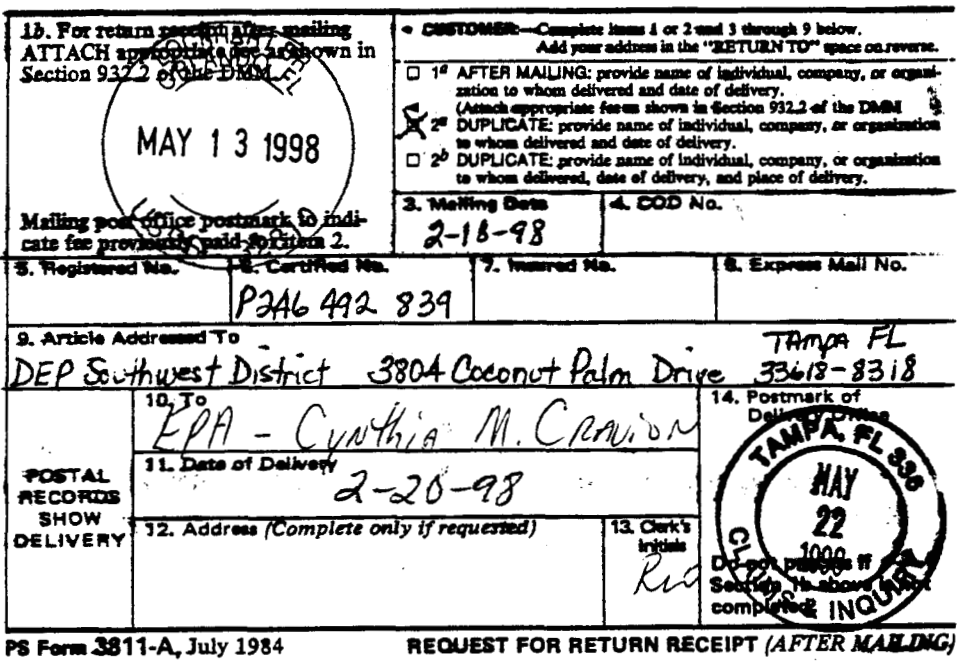 1b. For return receipt after mailing
ATTACH appropriate fee as shown in
Section 932.2 of the DMM.
MAY 13 1998
Mailing post office postmark to indi-
cate fee previously paid for item 2.
CUSTOMER—Complete items 1 or 2 and 3 through 9 below.
Add your address in the "RETURN TO" space on reverse.
☐ 1ª AFTER MAILING: provide name of individual, company, or organi-
zation to whom delivered and date of delivery.
(Attach appropriate fee as shown in Section 932.2 of the DMM
☒ 2ª DUPLICATE: provide name of individual, company, or organization
to whom delivered and date of delivery.
☐ 2ᵇ DUPLICATE: provide name of individual, company, or organization
to whom delivered, date of delivery, and place of delivery.
3. Mailing Date
2-18-98
4. COD No.
5. Registered No.
6. Certified No.
P246 492 839
7. Insured No.
8. Express Mail No.
9. Article Addressed To
DEP Southwest District 3804 Coconut Palm Drive
TAMPA FL
33618-8318
POSTAL
RECORDS
SHOW
DELIVERY
10. To
EPA - Cynthia M.
11. Date of Delivery
2-20-98
12. Address (Complete only if requested)
13. Clerk's
Initials
14. Postmark of
Delivery Office
TAMPA, FL 336
MAY
22
CLAIMS & INQUIRY
Do not process if
Section 1b above is not
completed
PS Form 3811-A, July 1984
REQUEST FOR RETURN RECEIPT (AFTER MAILING)